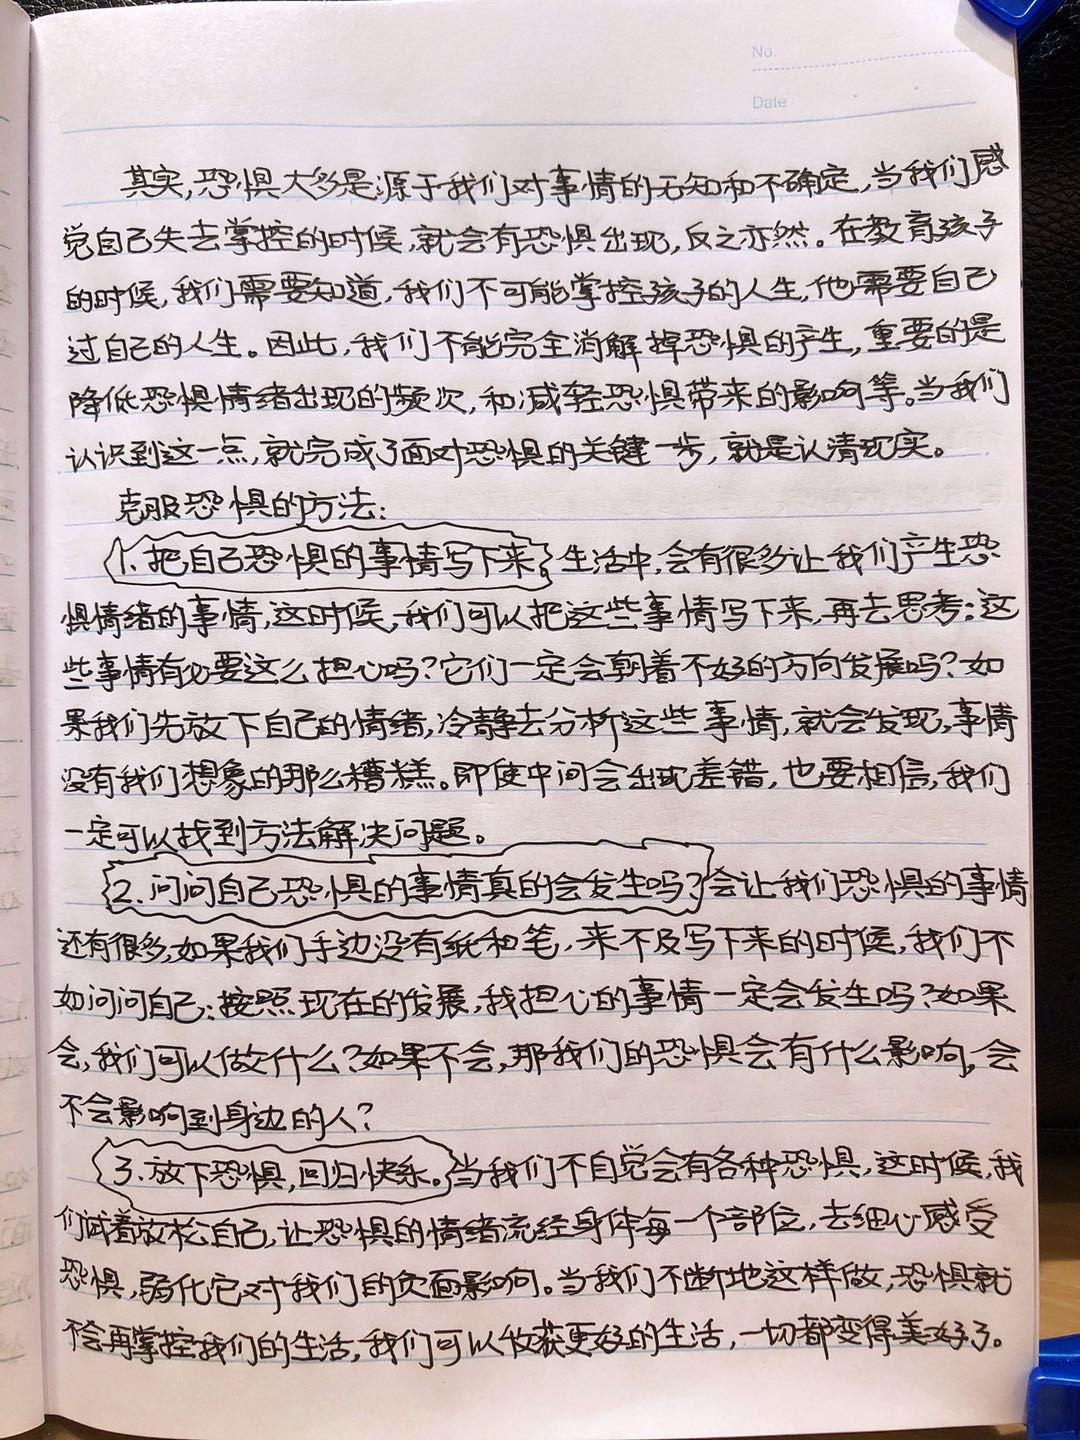 No.
Date
其实,恐惧大多是源于我们对事情的无知和不确定,当我们感
觉自己失去掌控的时候,就会有恐惧出现,反之亦然。在教育孩子
的时候,我们需要知道,我们不可能掌控孩子的人生,他需要自己
过自己的人生。因此,我们不能完全消解掉恐惧的产生,重要的是
降低恐惧情绪出现的频次,和减轻恐惧带来的影响等。当我们
认识到这一点,就完成了面对恐惧的关键一步,就是认清现实。
克服恐惧的方法:
1.把自己恐惧的事情写下来。生活中,会有很多让我们产生恐
惧情绪的事情,这时候,我们可以把这些事情写下来,再去思考:这
些事情有必要这么担心吗?它们一定会朝着不好的方向发展吗?如
果我们先放下自己的情绪,冷静去分析这些事情,就会发现,事情
没有我们想象的那么糟糕。即使中间会出现差错,也要相信,我们
一定可以找到方法解决问题。
2.问问自己恐惧的事情真的会发生吗?会让我们恐惧的事情
还有很多,如果我们手边没有纸和笔,来不及写下来的时候,我们不
如问问自己:按照现在的发展,我担心的事情一定会发生吗?如果
会,我们可以做什么?如果不会,那我们的恐惧会有什么影响,会
不会影响到身边的人?
3.放下恐惧,回归快乐。当我们不自觉会有各种恐惧,这时候,我
们试着放松自己,让恐惧的情绪流经身体每一个部位,去细心感受
恐惧,弱化它对我们的负面影响。当我们不断地这样做,恐惧就
不会再掌控我们的生活,我们可以收获更好的生活,一切都变得美好了。